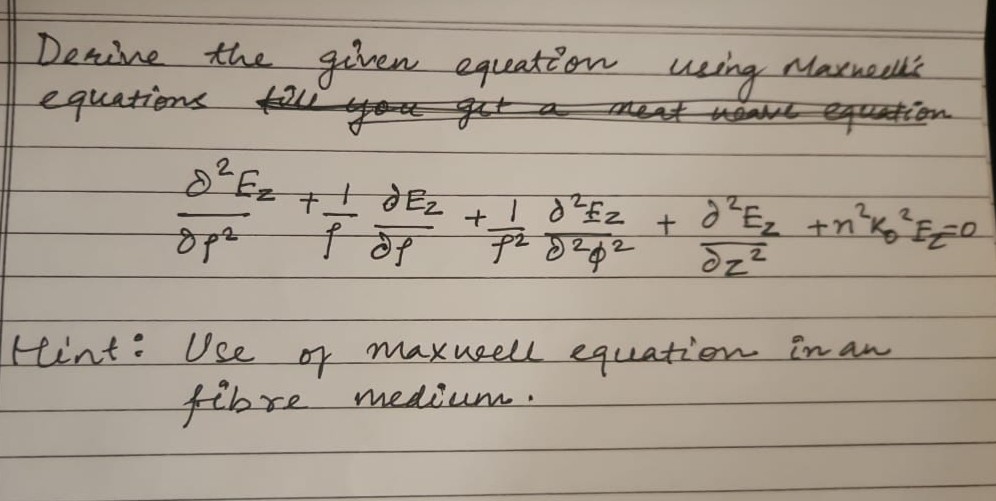 Derive the given equation using Maxwell's
equations till you get a neat wave equation
∂²E_z/∂ρ² + 1/ρ ∂E_z/∂ρ + 1/ρ² ∂²E_z/∂²φ² + ∂²E_z/∂z² + n²k₀²E_z=0
Hint: Use of maxwell equation in an
fibre medium.